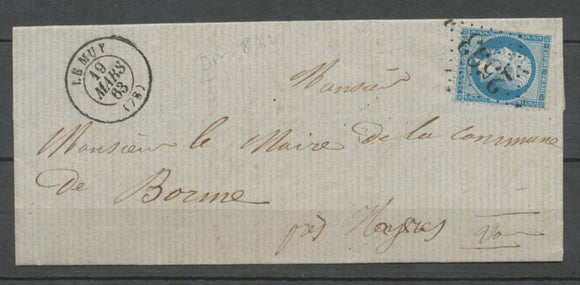 LE MUY
19
MARS
63
(78)
Monsieur
Monsieur le Maire de la commune
de Borme
près Hyères Var